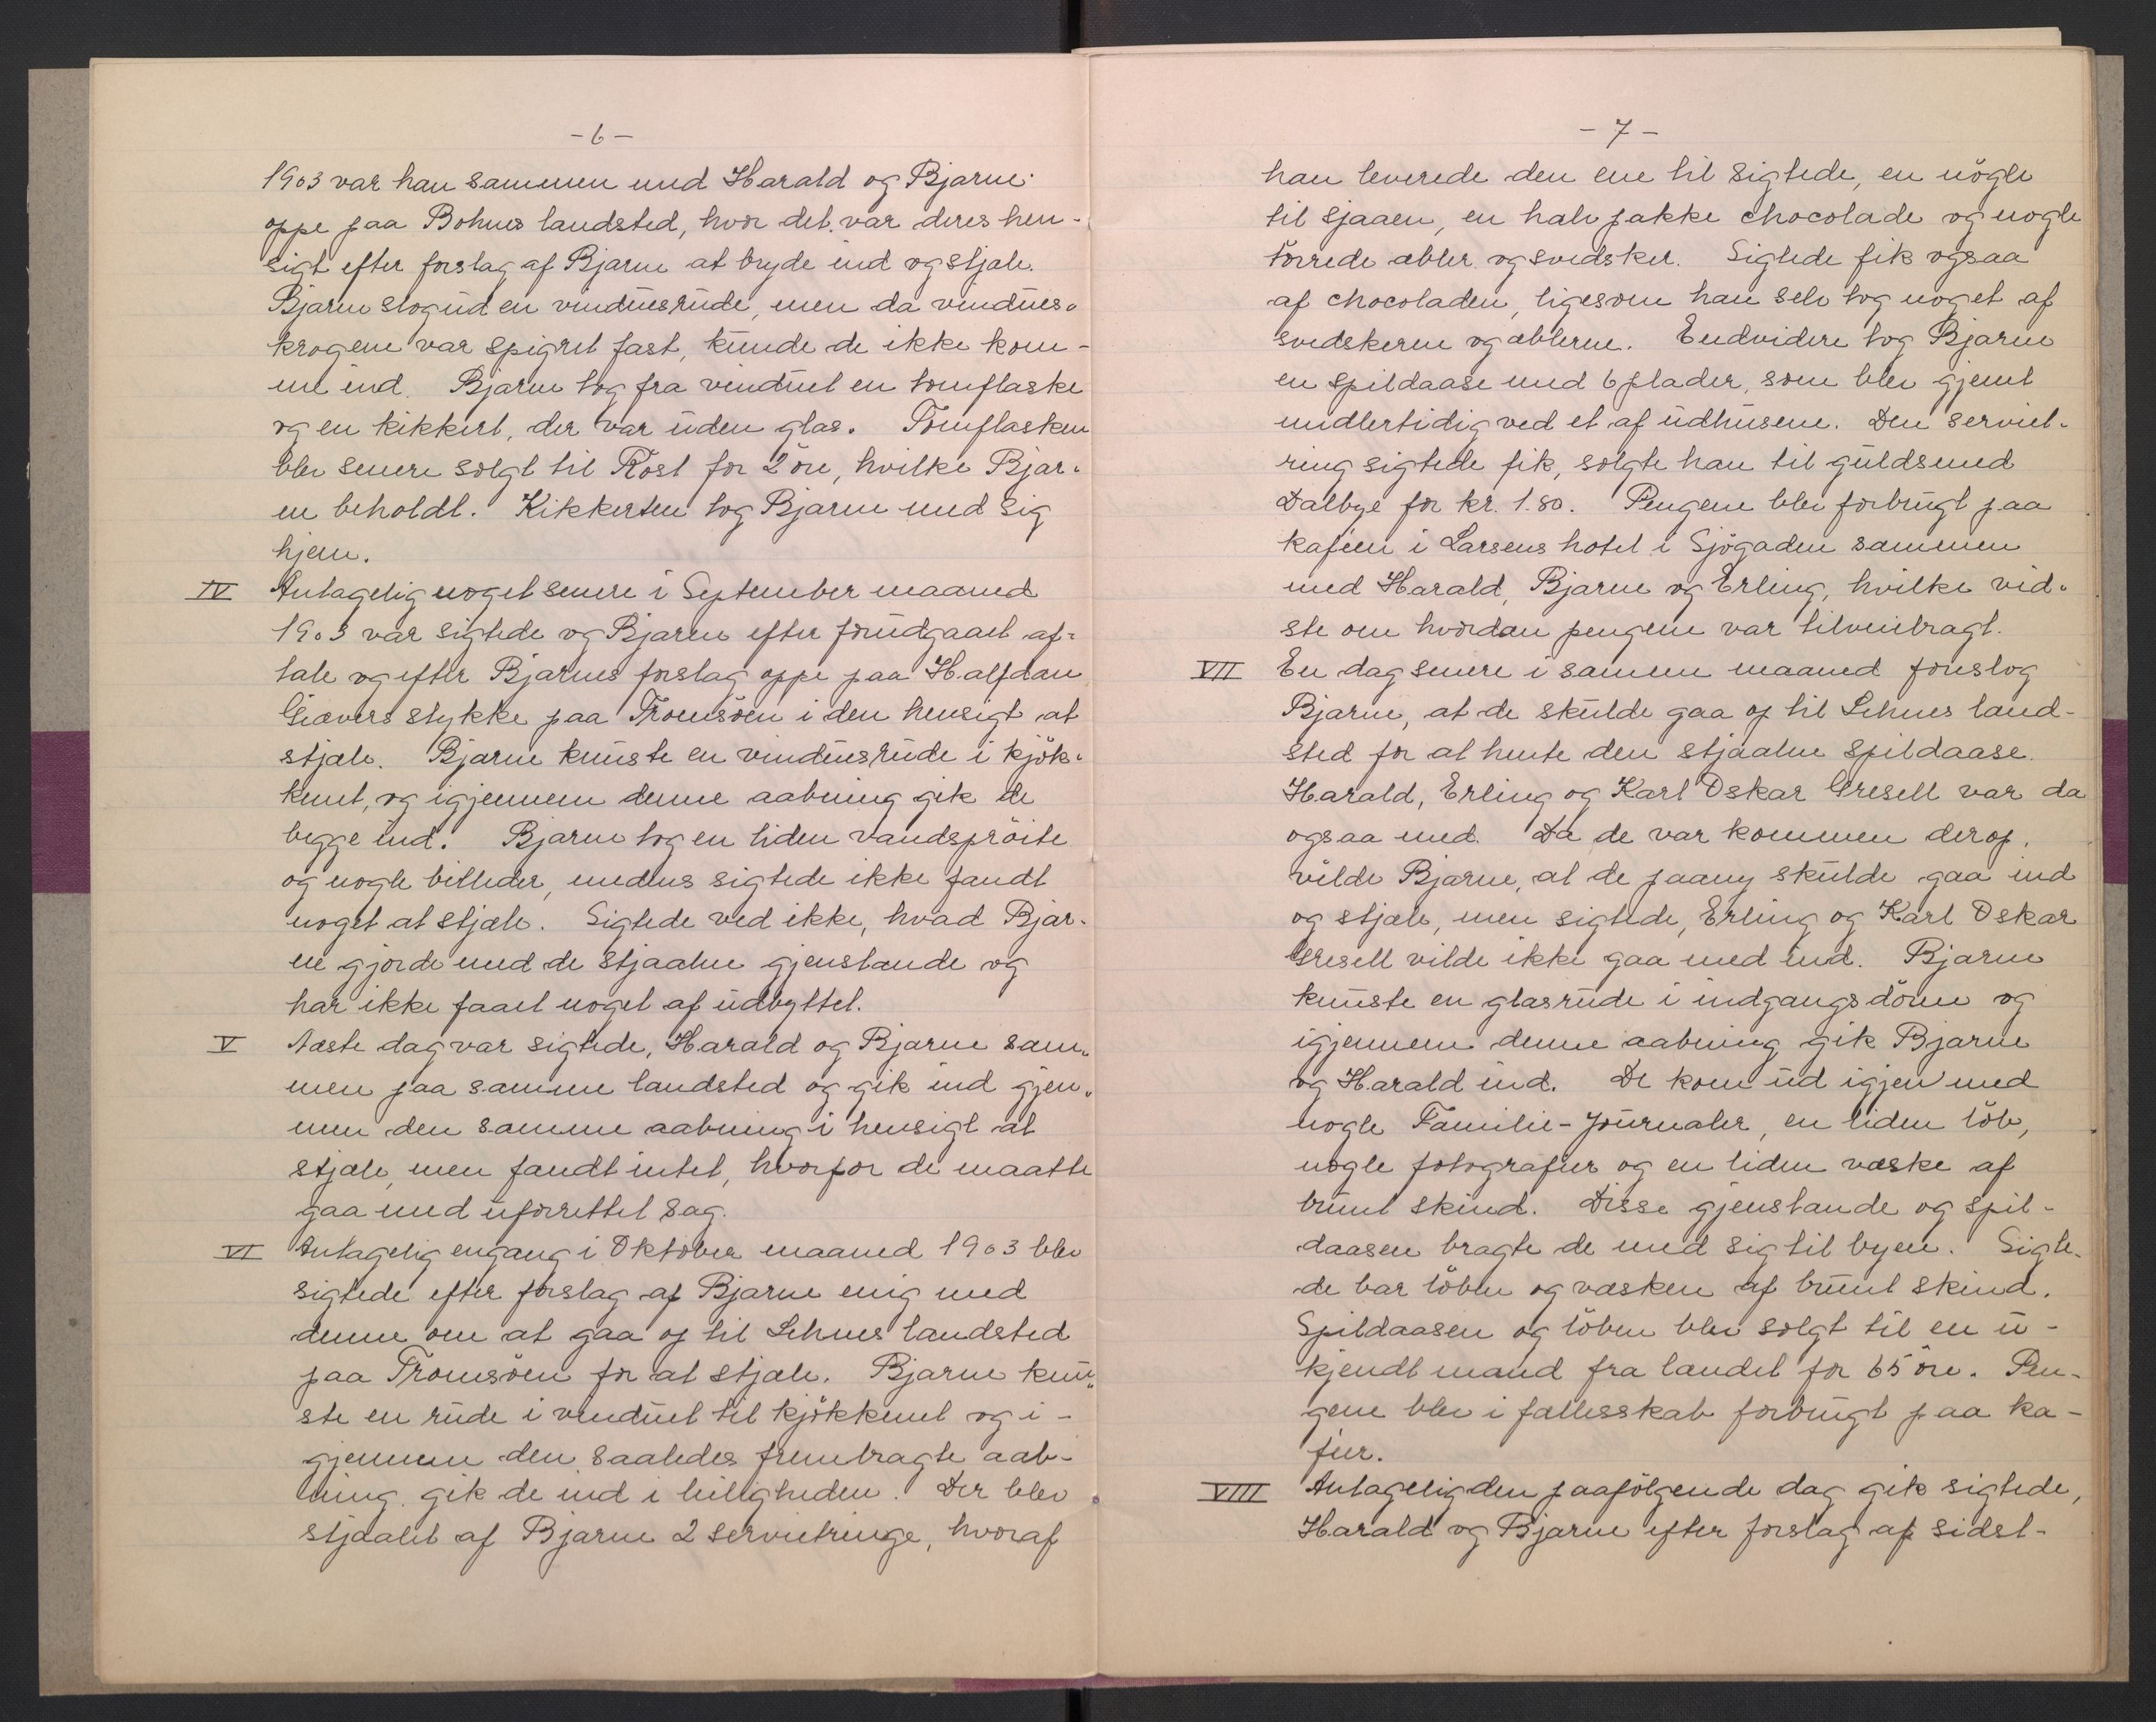 - 6 -
1903 var han sammen med Harald og Bjarne
oppe paa Bohnes landsted, hvor det var deres hen-
sigt efter forslag af Bjarne at bryde ind og stjæle.
Bjarne slog ud en vinduesrude, men da vindues-
krogene var spigret fast, kunde de ikke kom-
me ind. Bjarne tog fra vinduet en tomflaske
og en kikkert, der var uden glas. Tomflasken
blev senere solgt til Rost for 2 öre, hvilke Bjar-
ne beholdt. Kikkerten tog Bjarne med sig
hjem.
IV Antagelig noget senere i September maaned
1903 var sigtede og Bjarne efter forudgaaet af-
tale og efter Bjarnes forslag oppe paa Halfdan
Giævers stykke paa Tromsöen i den hensigt at
stjæle. Bjarne knuste en vinduesrude i kjök-
kenet, og igjennem denne aabning gik de
begge ind. Bjarne tog en liden vandspröite
og nogle billeder, medens sigtede ikke fandt
noget at stjæle. Sigtede ved ikke, hvad Bjar-
ne gjorde med de stjaalne gjenstande og
har ikke faaet noget af udbyttet.
V Næste dag var sigtede, Harald og Bjarne sam-
men paa samme landsted og gik ind gjen-
nem den samme aabning i hensigt at
stjæle, men fandt intet, hvorfor de maatte
gaa med uforrettet sag.
VI Antagelig engang i Oktober maaned 1903 blev
sigtede efter forslag af Bjarne enig med
denne om at gaa op til Lehnes landsted
paa Tromsöen for at stjæle. Bjarne knu-
ste en rude i vinduet til kjökkenet og i-
gjennem den saaledes frembragte aab-
ning gik de ind i leiligheden. Der blev
stjaalet af Bjarne 2 servietringe, hvoraf
- 7 -
han leverede den ene til sigtede, en nögle
til sjaaen, en halv pakke chocolade og nogle
törrede æbler og svedsker. Sigtede fik ogsaa
af chocoladen, ligesom han selv tog noget af
svedskerne og æblerne. Endvidere tog Bjarne
en spildaase med 6 plader, som blev gjemt
midlertidig ved et af udhusene. Den serviet-
ring sigtede fik, solgte han til guldsmed
Dalbye for kr. 1.80. Pengene blev forbrugt paa
kafeen i Larsens hotel i Sjögaden sammen
med Harald, Bjarne og Erling, hvilke vid-
ste om hvordan pengene var tilveiebragt.
VII En dag senere i samme maaned foreslog
Bjarne, at de skulde gaa op til Lehnes land-
sted for at hente den stjaalne spildaase.
Harald, Erling og Karl Oskar Gresell var da
ogsaa med. Da de var kommen derop,
vilde Bjarne, at de paany skulde gaa ind
og stjæle, men sigtede, Erling og Karl Oskar
Gresell vilde ikke gaa med ind. Bjarne
knuste en glasrude i indgangsdören og
igjennem denne aabning gik Bjarne
og Harald ind. De kom ud igjen med
nogle Familie-Journaler, en liden löb,
nogle fotografier og en liden væske af
brunt skind. Disse gjenstande og spil-
daasen bragte de med sig til byen. Sigte-
de bar löben og væsken af brunt skind.
Spildaasen og löben blev solgt til en u-
kjendt mand fra landet for 65 öre. Pen-
gene blev i fællesskab forbrugt paa ka-
feer.
VIII Antagelig den paafölgende dag gik sigtede,
Harald og Bjarne efter forslag af sidst-